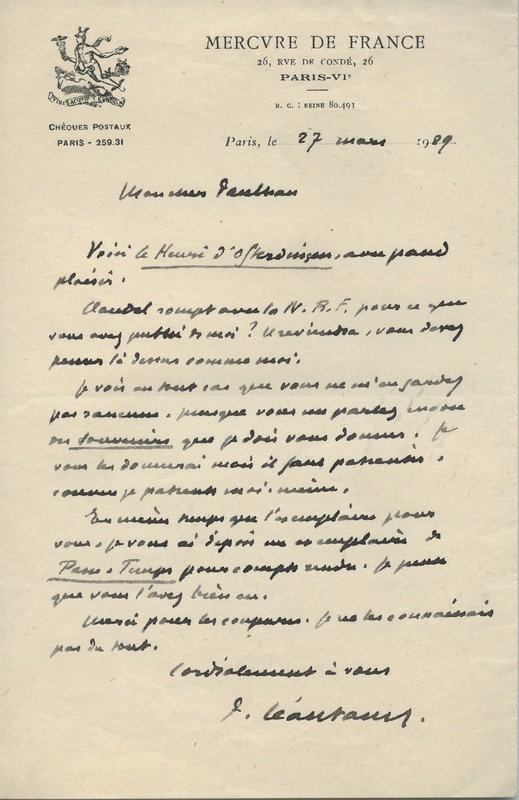 MERCVRE DE FRANCE
26, RVE DE CONDÉ, 26
PARIS-VIe
R. C. : SEINE 80.493
CHÈQUES POSTAUX
PARIS - 259.31
Paris, le 27 mars 19
Mon cher Paulhan
Voici le Henri d'Ofterdingen, avec grand
plaisir.
Claudel rompt avec la N. R. F. pour ce que
vous avez publié de moi ? Il reviendra, vous devez
penser là dessus comme moi.
Je vois en tout cas que vous ne m'en gardez
pas rancune, puisque vous me parlez encore
des Souvenirs que je dois vous donner. Je
vous les donnerai mais il faut patienter,
comme je patiente moi-même.
En même temps que l'exemplaire pour
vous, je vous ai déposé un exemplaire de
Passe-Temps pour compte rendu. Je pense
que vous l'avez bien eu.
Merci pour les coupures. Je ne les connaissais
pas du tout.
Cordialement à vous
P. Léautaud.